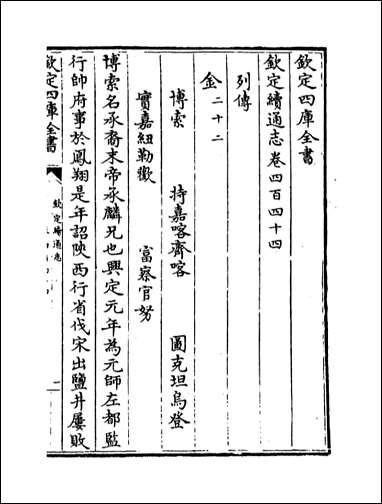 欽定四庫全書
欽定續通志卷四百四十四
列傳
金二十二
博索　持嘉喀齊喀　圖克坦烏登
實嘉紐勒歡　富察官努
博索名承裔末帝承麟兄也興定元年為元師左都監
行帥府事於鳳翔是年詔陜西行省伐宋出鹽井屢敗
欽定四庫全書
欽定續通志
一